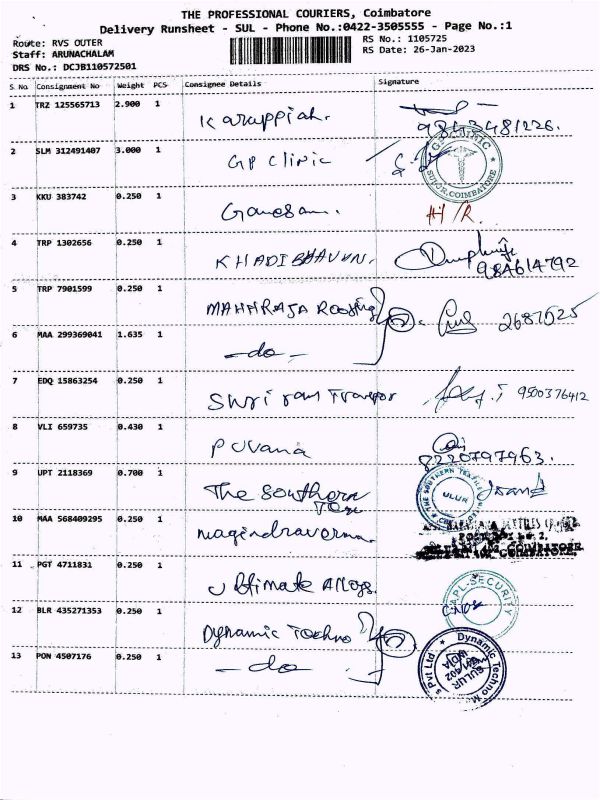 THE PROFESSIONAL COURIERS, Coimbatore
Delivery Runsheet - SUL - Phone No.:0422-3505555 - Page No.:1
Route: RVS OUTER
RS No.: 1105725
Staff: ARUNACHALAM
RS Date: 26-Jan-2023
DRS No.: DCJB110572501
S. No Consignment No Weight PCS Consignee Details Signature
1 TRZ 125565713 2.900 1 Karuppiah.
9843481226.
2 SLM 312491407 3.000 1 GP Clinic
GP CLINIC
SULUR, COIMBATORE
3 KKU 383742 0.250 1 Ganesan.
4 TRP 1302656 0.250 1 KHADIBHAVN.
98A614792
5 TRP 7901599 0.250 1 MAHARAJA Roofing
2687525
6 MAA 299369041 1.635 1 - do -
7 EDQ 15863254 0.250 1 Shri ram Transpor 9500376412
8 VLI 659735 0.430 1 Puvana
8220797963.
9 UPT 2118369 0.700 1 The Southern
Tex
THE SOUTHERN TEXTILE
ULUR
10 MAA 568409295 0.250 1 nagindravarma.
11 PGT 4711831 0.250 1 Ultimate Alloys.
APL-SECURITY
12 BLR 435271353 0.250 1 Dynamic Techno
13 PON 4507176 0.250 1 - do -
Dynamic Techno M
s Pvt Ltd
SULUR
641402
INDIA